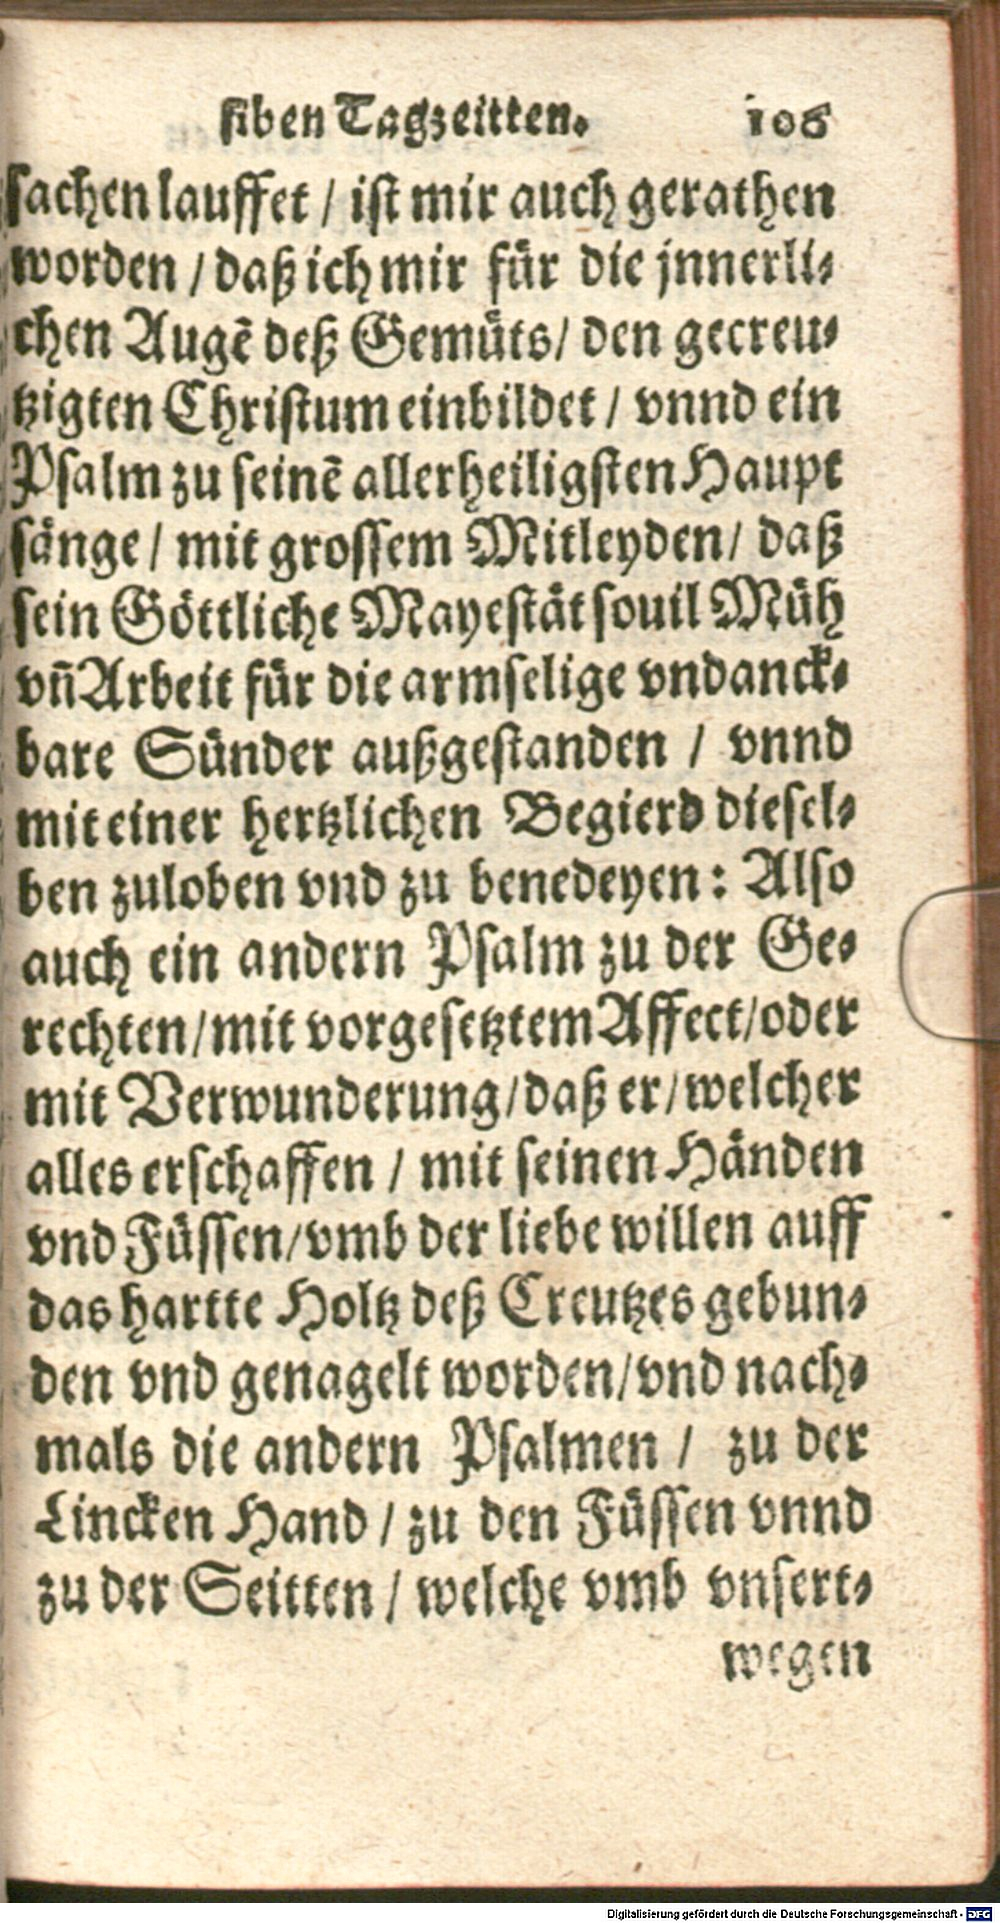 siben Tagzeitten. 106
sachen lauffet / ist mir auch gerathen
worden / daß ich mir für die jnnerli-
chen Augē deß Gemüts / den gecreu-
tzigten Christum einbildet / vnnd ein
Psalm zu seinē allerheiligsten Haupt
sänge / mit grossem Mitleyden / daß
sein Göttliche Mayestät souil Müh
vñ Arbeit für die armselige vndanck-
bare Sünder außgestanden / vnnd
mit einer hertzlichen Begierd diesel-
ben zuloben vnd zu benedeyen: Also
auch ein andern Psalm zu der Ge-
rechten / mit vorgesetztem Affect / oder
mit Verwunderung / daß er / welcher
alles erschaffen / mit seinen Händen
vnd Füssen / vmb der liebe willen auff
das hartte Holtz deß Creutzes gebun-
den vnd genagelt worden / vnd nach-
mals die andern Psalmen / zu der
Lincken Hand / zu den Füssen vnnd
zu der Seitten / welche vmb vnsert-
wegen
Digitalisierung gefördert durch die Deutsche Forschungsgemeinschaft - DFG